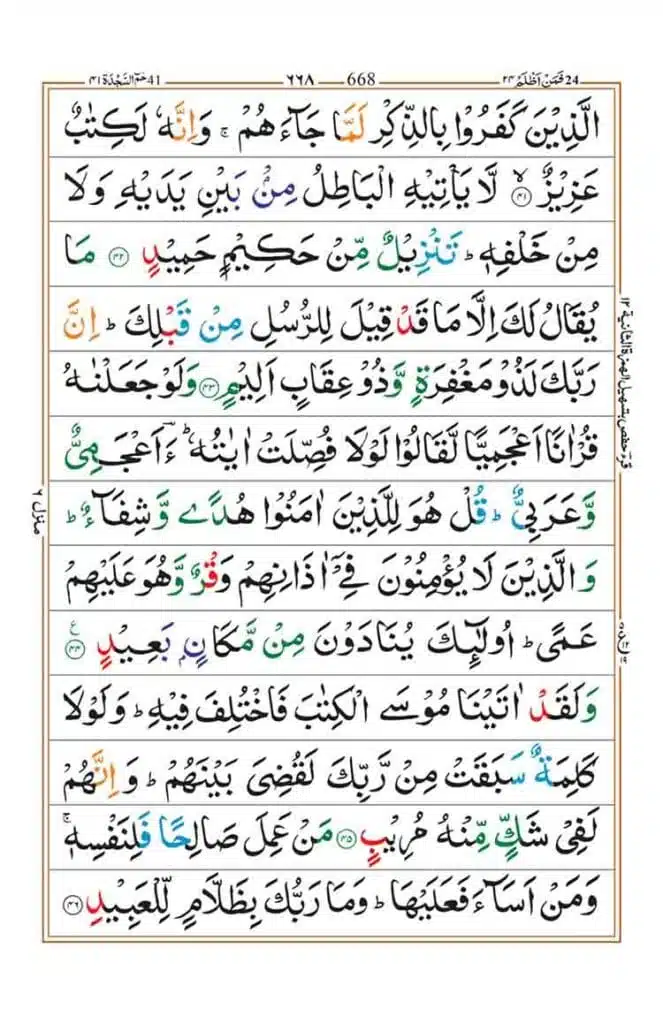 24 فَمَنْ اَظْلَمُ ٢٤ 668 ٦٦٨ 41 حٰمٓ السَّجْدَة ٤١
الَّذِيْنَ كَفَرُوْا بِالذِّكْرِ لَمَّا جَآءَهُمْ ۚ وَاِنَّهٗ لَكِتٰبٌ
عَزِيْزٌ ۙ﴿٤١﴾ لَّا يَاْتِيْهِ الْبَاطِلُ مِنْۢ بَيْنِ يَدَيْهِ وَلَا
مِنْ خَلْفِهٖ ؕ تَنْزِيْلٌ مِّنْ حَكِيْمٍ حَمِيْدٍ ﴿٤٢﴾ مَا
يُقَالُ لَكَ اِلَّا مَا قَدْ قِيْلَ لِلرُّسُلِ مِنْ قَبْلِكَ ؕ اِنَّ
رَبَّكَ لَذُوْ مَغْفِرَةٍ وَّذُوْ عِقَابٍ اَلِيْمٍ ﴿٤٣﴾ وَلَوْ جَعَلْنٰهُ
قُرْاٰنًا اَعْجَمِيًّا لَّقَالُوْا لَوْلَا فُصِّلَتْ اٰيٰتُهٗ ؕ ءَؔاَعْجَمِيٌّ
وَّعَرَبِيٌّ ؕ قُلْ هُوَ لِلَّذِيْنَ اٰمَنُوْا هُدًى وَّشِفَآءٌ ؕ
وَالَّذِيْنَ لَا يُؤْمِنُوْنَ فِيْۤ اٰذَانِهِمْ وَقْرٌ وَّهُوَ عَلَيْهِمْ
عَمًى ؕ اُولٰٓئِكَ يُنَادَوْنَ مِنْ مَّكَانٍۭ بَعِيْدٍ ﴿٤٤﴾ ع
وَلَقَدْ اٰتَيْنَا مُوْسَى الْكِتٰبَ فَاخْتُلِفَ فِيْهِ ؕ وَلَوْلَا
كَلِمَةٌ سَبَقَتْ مِنْ رَّبِّكَ لَقُضِيَ بَيْنَهُمْ ؕ وَاِنَّهُمْ
لَفِيْ شَكٍّ مِّنْهُ مُرِيْبٍ ﴿٤٥﴾ مَنْ عَمِلَ صَالِحًا فَلِنَفْسِهٖ ۚ
وَمَنْ اَسَآءَ فَعَلَيْهَا ؕ وَمَا رَبُّكَ بِظَلَّامٍ لِّلْعَبِيْدِ ﴿٤٦﴾
منزل ٦